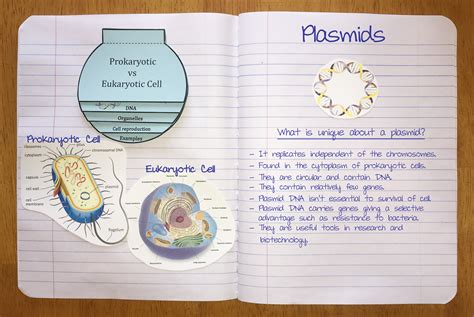 Prokaryotic
vs
Eukaryotic Cell
DNA
Organelles
Cell reproduction
Examples
Prokaryotic Cell
ribosomes
cytoplasm
chromosomal DNA
pili
capsule
cell wall
cell
membrane
plasmid
flagellum
Eukaryotic Cell
Plasmids
What is unique about a plasmid?
- It replicates independent of the chromosomes.
- Found in the cytoplasm of prokaryotic cells.
- They are circular and contain DNA.
- They contain relatively few genes.
- Plasmid DNA isn't essential to survival of cell.
- Plasmid DNA carries genes giving a selective
advantage such as resistance to bacteria.
- They are useful tools in research and
biotechnology.